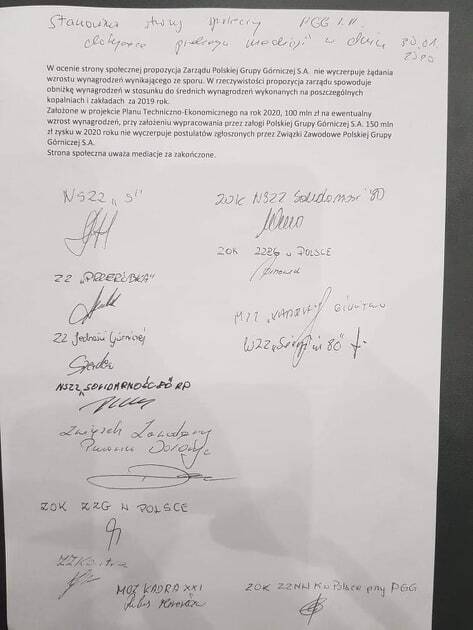 Stanowisko strony społecznej PGG S.A.
dotyczące przebiegu mediacji w dniu 30.01.
2020
W ocenie strony społecznej propozycja Zarządu Polskiej Grupy Górniczej S.A. nie wyczerpuje żądania
wzrostu wynagrodzeń wynikającego ze sporu. W rzeczywistości propozycja zarządu spowoduje
obniżkę wynagrodzeń w stosunku do średnich wynagrodzeń wykonanych na poszczególnych
kopalniach i zakładach za 2019 rok.
Założone w projekcie Planu Techniczno-Ekonomicznego na rok 2020, 100 mln zł na ewentualny
wzrost wynagrodzeń, przy założeniu wypracowania przez załogi Polskiej Grupy Górniczej S.A. 150 mln
zł zysku w 2020 roku nie wyczerpuje postulatów zgłoszonych przez Związki Zawodowe Polskiej Grupy
Górniczej S.A.
Strona społeczna uważa mediacje za zakończone.
NSZZ „S"
ZOK NSZZ Solidarność 80
ZOK ZZRG w POLSCE
ZZ „PRZERÓBKA"
MZZ „KADRA" Górnictwo
ZZ Jedności Górniczej
WZZ „Sierpień 80"
NSZZ „SOLIDARNOŚĆ 80" RP
Związek Zawodowy
Pracowników Dołowych
ZOK ZZG W POLSCE
ZZ Kontra
MOZ KADRA XXI
ZOK ZZNN K w Polsce przy PGG